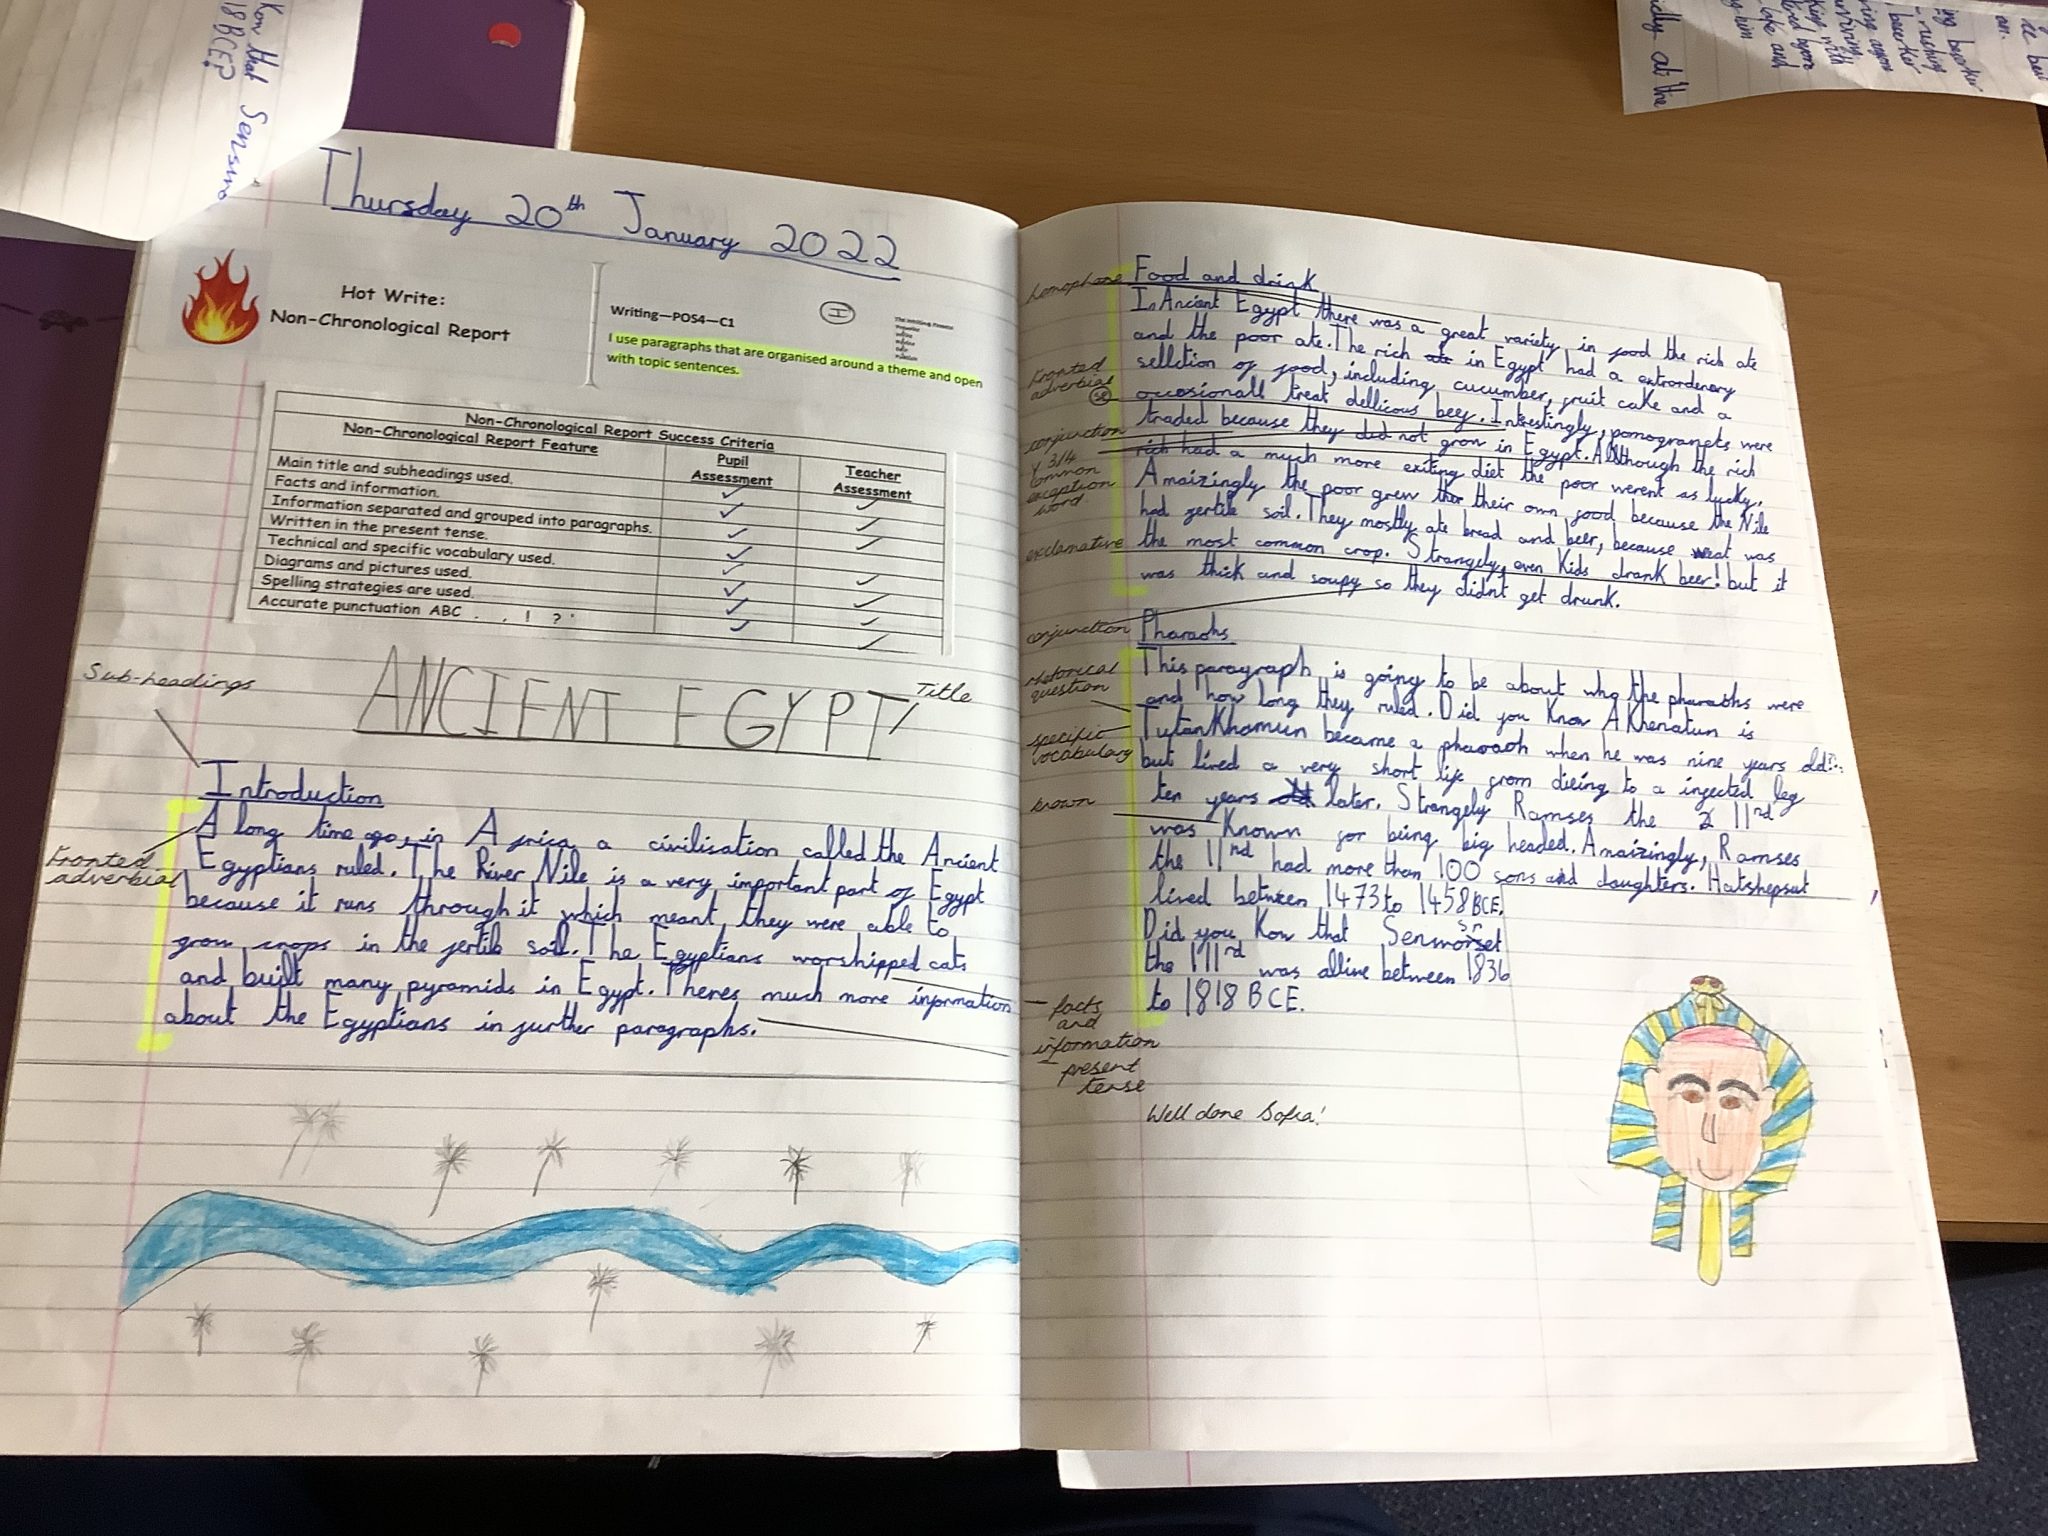 Kow that Senswo
18 BCE?
Thursday 20th January 2022
Hot Write:
Non-Chronological Report
Writing—POS4—C1
I
I use paragraphs that are organised around a theme and open
with topic sentences.
Non-Chronological Report Success Criteria
Non-Chronological Report Feature
Pupil Assessment
Teacher Assessment
Main title and subheadings used.
Facts and information.
Information separated and grouped into paragraphs.
Written in the present tense.
Technical and specific vocabulary used.
Diagrams and pictures used.
Spelling strategies are used.
Accurate punctuation ABC . , ! ? '
Sub-headings
ANCIENT EGYPT
Title
Introduction
A long time ago, in Africa a civilisation called the Ancient
Fronted adverbial
Egyptians ruled. The River Nile is a very important part of Egypt
because it runs through it which meant they were able to
grow crops in the fertile soil. The Egyptians worshipped cats
and built many pyramids in Egypt. Theres much more information
about the Egyptians in further paragraphs.
homophone
Food and drink
In Ancient Egypt there was a great variety in food the rich ate
and the poor ate. The rich ate in Egypt had a extrordenary
Fronted adverbial
selletion of food, including cucumber, fruit cake and a
occosionall treat dellicous beef. Intrestingly, pomogranets were
conjunction
traded because they did not grow in Egypt. Although the rich
Y 3/4 common exception word
rich had a much more exiting diet the poor werent as lucky.
Amaizingly the poor grew thor their own food because the Nile
had fertile soil. They mostly ate bread and beer, because weat was
exclamative
the most common crop. Strangely, even Kids drank beer! but it
was thick and soupy so they didn't get drunk.
conjunction
Pharaohs
rhetorical question
This paragraph is going to be about who the pharaohs were
and how long they ruled. Did you Know AKhenatun is
specific vocabulary
TutanKhamun became a pharaoh when he was nine years old
but lived a very short life from dieing to a infected leg
known
ten years old later. Strangely Ramses the 2 11nd
was Known for being big headed. Amaizingly, Ramses
the 11nd had more than 100 sons and daughters. Hatshepsut
lived between 1473 to 1458 BCE.
Did you Kow that Senworset
the 111rd was allive between 1836
to 1818 BCE.
facts and information
present tense
Well done Sofia!